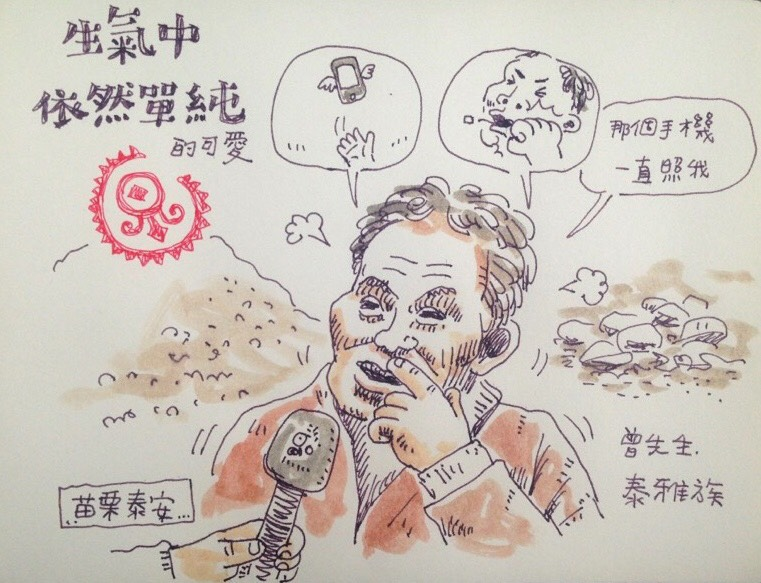 生氣中
依然單純
的可愛
那個手機
一直照我
苗栗泰安...
曾先生.
泰雅族